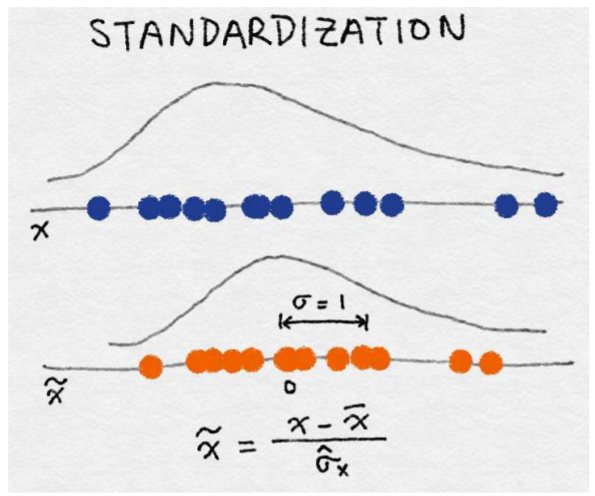 STANDARDIZATION
x
σ = 1
0
x̃
x̃ = (x - x̄) / σ̂ₓ